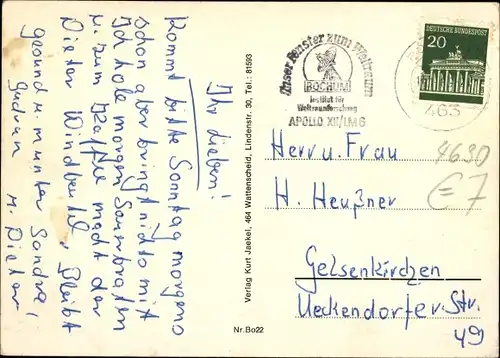 Ihr lieben!
Kommt bitte Sonntag morgens
schon aber bringt nichts mit
Ich hole morgen Sauerbraten
u. zum Kaffee macht der
Dieter Windbeutel. Bleibt
gesund u. munter Sandra,
Gudrun u. Dieter
Verlag Kurt Jaekel, 464 Wattenscheid, Lindenstr. 30, Tel.: 81593
Nr. Bo22
Unser Fenster zum Weltraum
BOCHUM
Institut für
Weltraumforschung
APOLLO XII/LM 6
DEUTSCHE BUNDESPOST
20
463
Herrn u. Frau
4630
H. Heußner
€7
Gelsenkirchen
Ueckendorfer-Str.
49